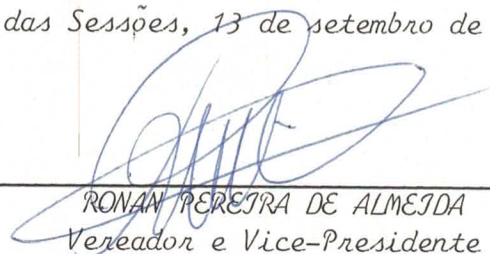 das Sessões, 13 de setembro de
RONAN PEREIRA DE ALMEIDA
Vereador e Vice-Presidente